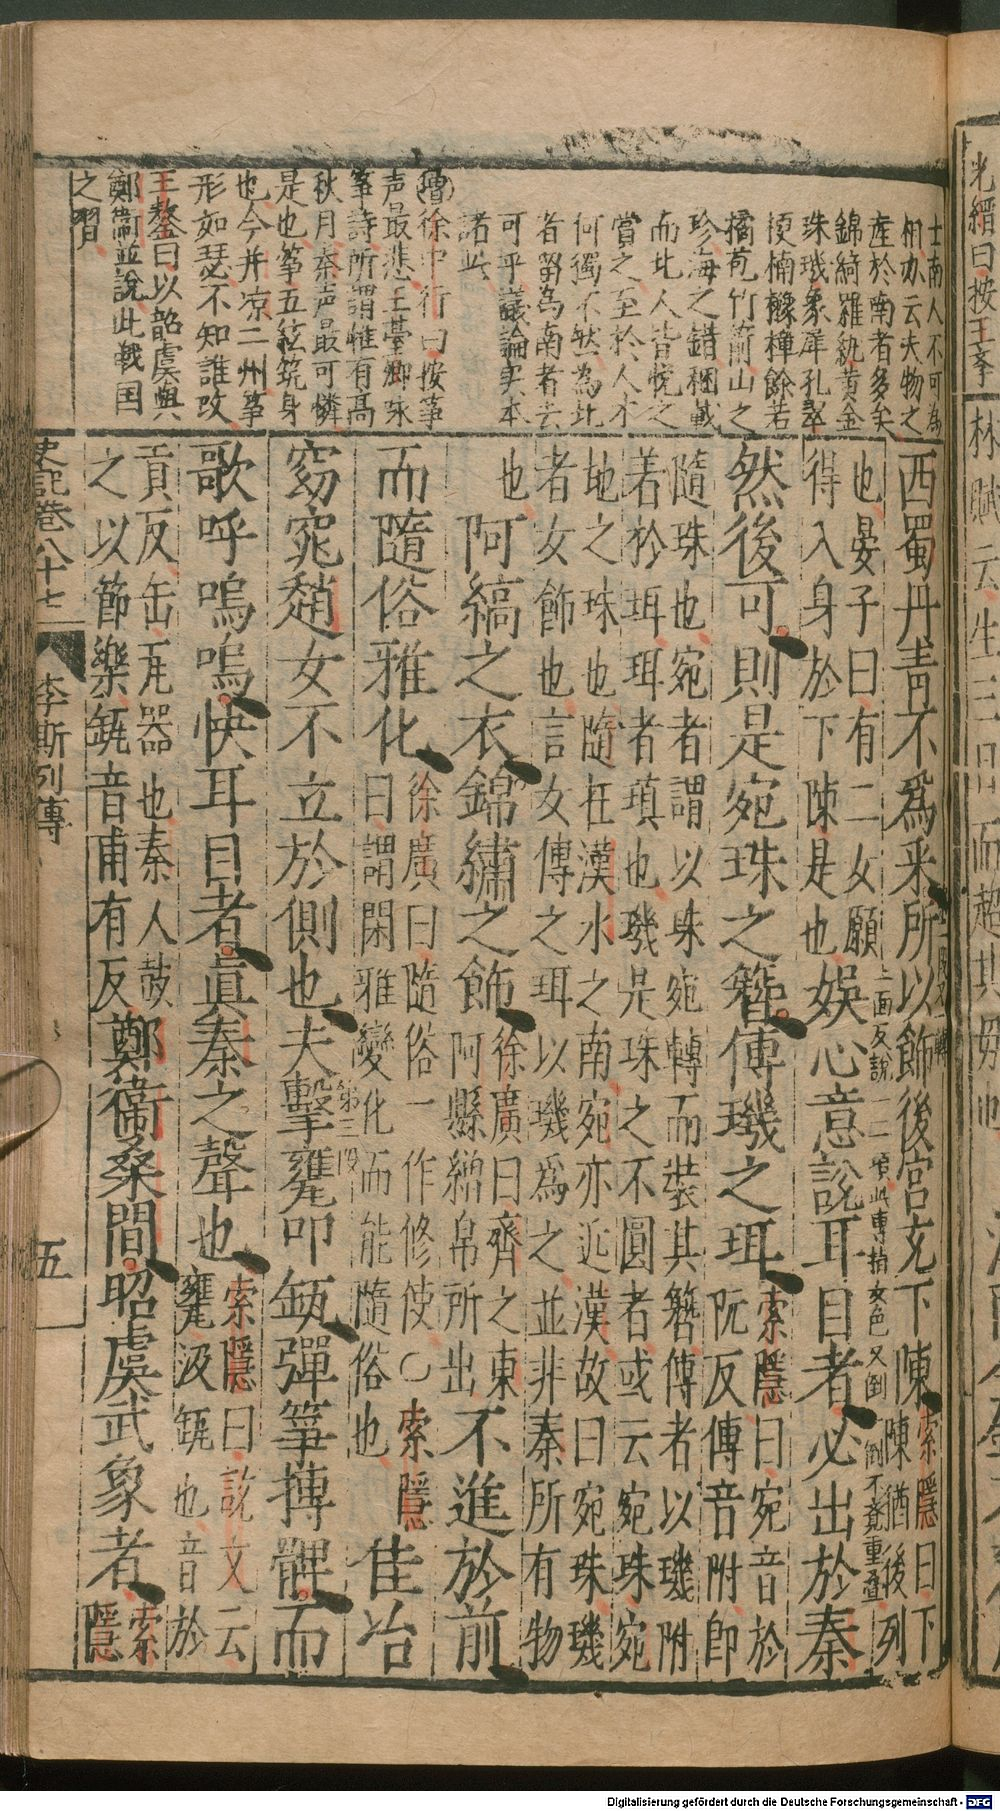 光縉曰按王孝
士南人不可為
相亦云夫物之
産於南者多矣
錦綺羅紈黄金
珠璣象犀孔翠
楩楠櫲樟餘若
橘苞竹箭山之
珍海之錯稇載
而北人皆悅之
賞之至於人才
何獨不然為北
者留為南者去
可乎議論实本
諸此
增徐中行曰按筝
声最悲王臺卿咏
筝詩所謂惟有高
秋月秦声最可憐
是也筝五絃筑身
也今并凉二州筝
形如瑟不知誰改
王鏊曰以韶虞與
鄭衞並說此戰国
之習
西蜀丹青不爲采所以飾後宮充下陳索隱曰下
陳猶後列
也晏子曰有二女願
得入身於下陳是也娛心意說耳目者必出於秦
上面反說一二項此專指女色又倒
倒不覺重叠
然後可則是宛珠之簪傅璣之珥索隱曰宛音於
阮反傅音附卽
隨珠也宛者謂以珠宛轉而裝其簪傅者以璣附
着於珥珥者瑱也璣是珠之不圓者或云宛珠宛
地之珠也隨在漢水之南宛亦近漢故曰宛珠璣
者女飾也言女傅之珥以璣爲之並非秦所有物
也阿縞之衣錦繡之飾徐廣曰齊之東
阿縣繒帛所出不進於前
而隨俗雅化徐廣曰隨俗一作修使〇索隱
曰謂閑雅變化而能隨俗也佳冶
窈窕趙女不立於側也夫擊甕叩缻彈箏搏髀而
第三段
歌呼嗚嗚快耳目者真秦之聲也索隱曰說文云
甕汲缾也音於
貢反缶瓦器也秦人鼓
之以節樂缻音甫有反鄭衞桑間昭虞武象者索
隱
史記卷八十七 李斯列傳 五
Digitalisierung gefördert durch die Deutsche Forschungsgemeinschaft - DFG